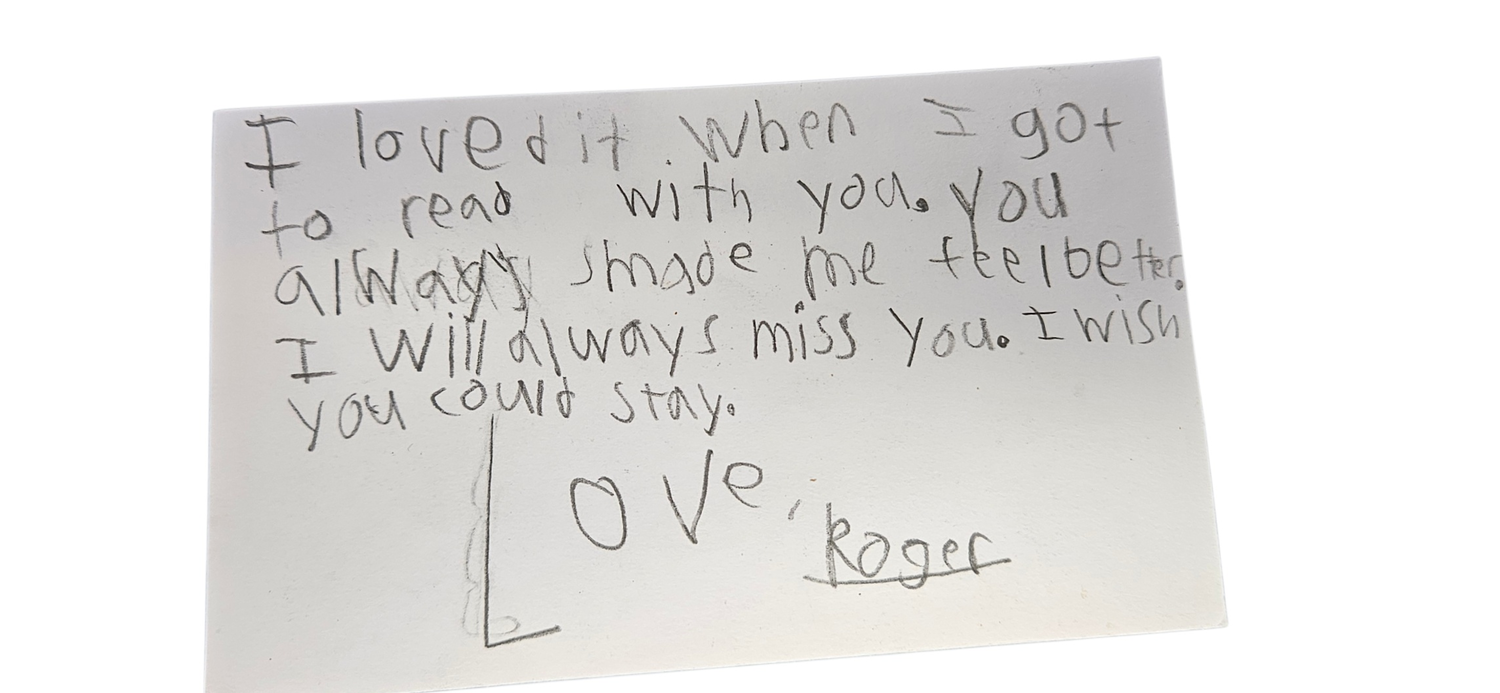 I loved it when I got
to read with you. you
always made me feel better.
I will always miss you. I wish
you could stay.
Love,
Roger